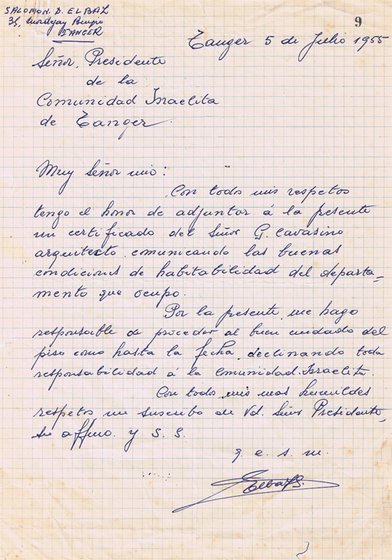 SALOMON. D. ELBAZ
TANGER
9
Tanger 5 de Julio 1955
Señor, Presidente
de la
Comunidad Israelita
de Tanger.
Muy Señor mio:
Con todos mis respetos
tengo el honor de adjuntar á la presente
un certificado del Señor G. Cavasino
arquitecto, comunicando las buenas
condiciones de habitabilidad del departa-
mento que ocupo.
Por la presente, me hago
responsable de proceder al buen cuidado del
piso como hasta la fecha, declinando toda
responsabilidad á la Comunidad Israelita.
Con todo mis mas humildes
respetos me suscribo de Vd. Señor Presidente,
su affmo. y S. S.
q e. s. m.